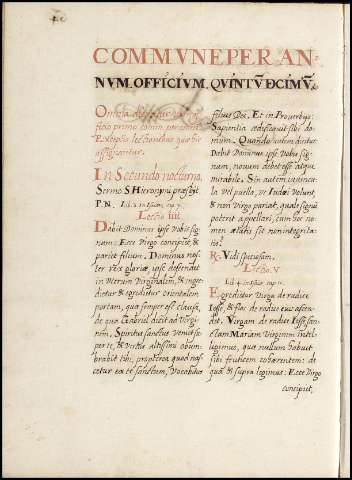 COMMVNE PER AN-
NVM. OFFICIVM. QVINTV̄DCIMV̄.
Omnia dicuntur
ficio primo comm. per annū
Exceptis lectionibus quæ hic
assignantur.
In Secundo nocturno.
Sermo S Hieronymi præsbyt
Lectio iiij.
Dabit Dominus ipse vobis sig-
num: Ecce Virgo concipiet, &
pariet filium. Dominus nos-
ter rex gloriæ, ipse descendit
in uterum Virginalem, & ingre-
dietur & egredietur orientalem
portam, quæ semper est clausa,
de qua Gabriel dicit ad Virgi-
nem, Spiritus sanctus veniet su-
per te, & virtus altissimi obum-
brabit tibi, propterea quod nas-
cetur ex te sanctum, vocabitur
filius Dei. Et in Proverbijs:
Sapientia ædificavit sibi do-
mum. Quando autem dicitur
Dabit Dominus ipse vobis sig-
num, novum debet esse atque
mirabile. Sin autem iuvencu-
la vel puella, ut Iudæi volunt,
& non Virgo pariat, quale signū
poterit appellari, cum hoc no-
men ætatis sit non integrita-
tis?
R. Vidi speciosam.
Lectio. V.
Egredietur Virga de radice
Iesse & flos de radice eius ascen-
det. Virgam de radice Iesse san-
ctam Mariam Virginem intel-
ligimus, quæ nullum habuit
sibi fruticem cohærentem: de
qua & supra legimus: Ecce Virgo
concipiet,